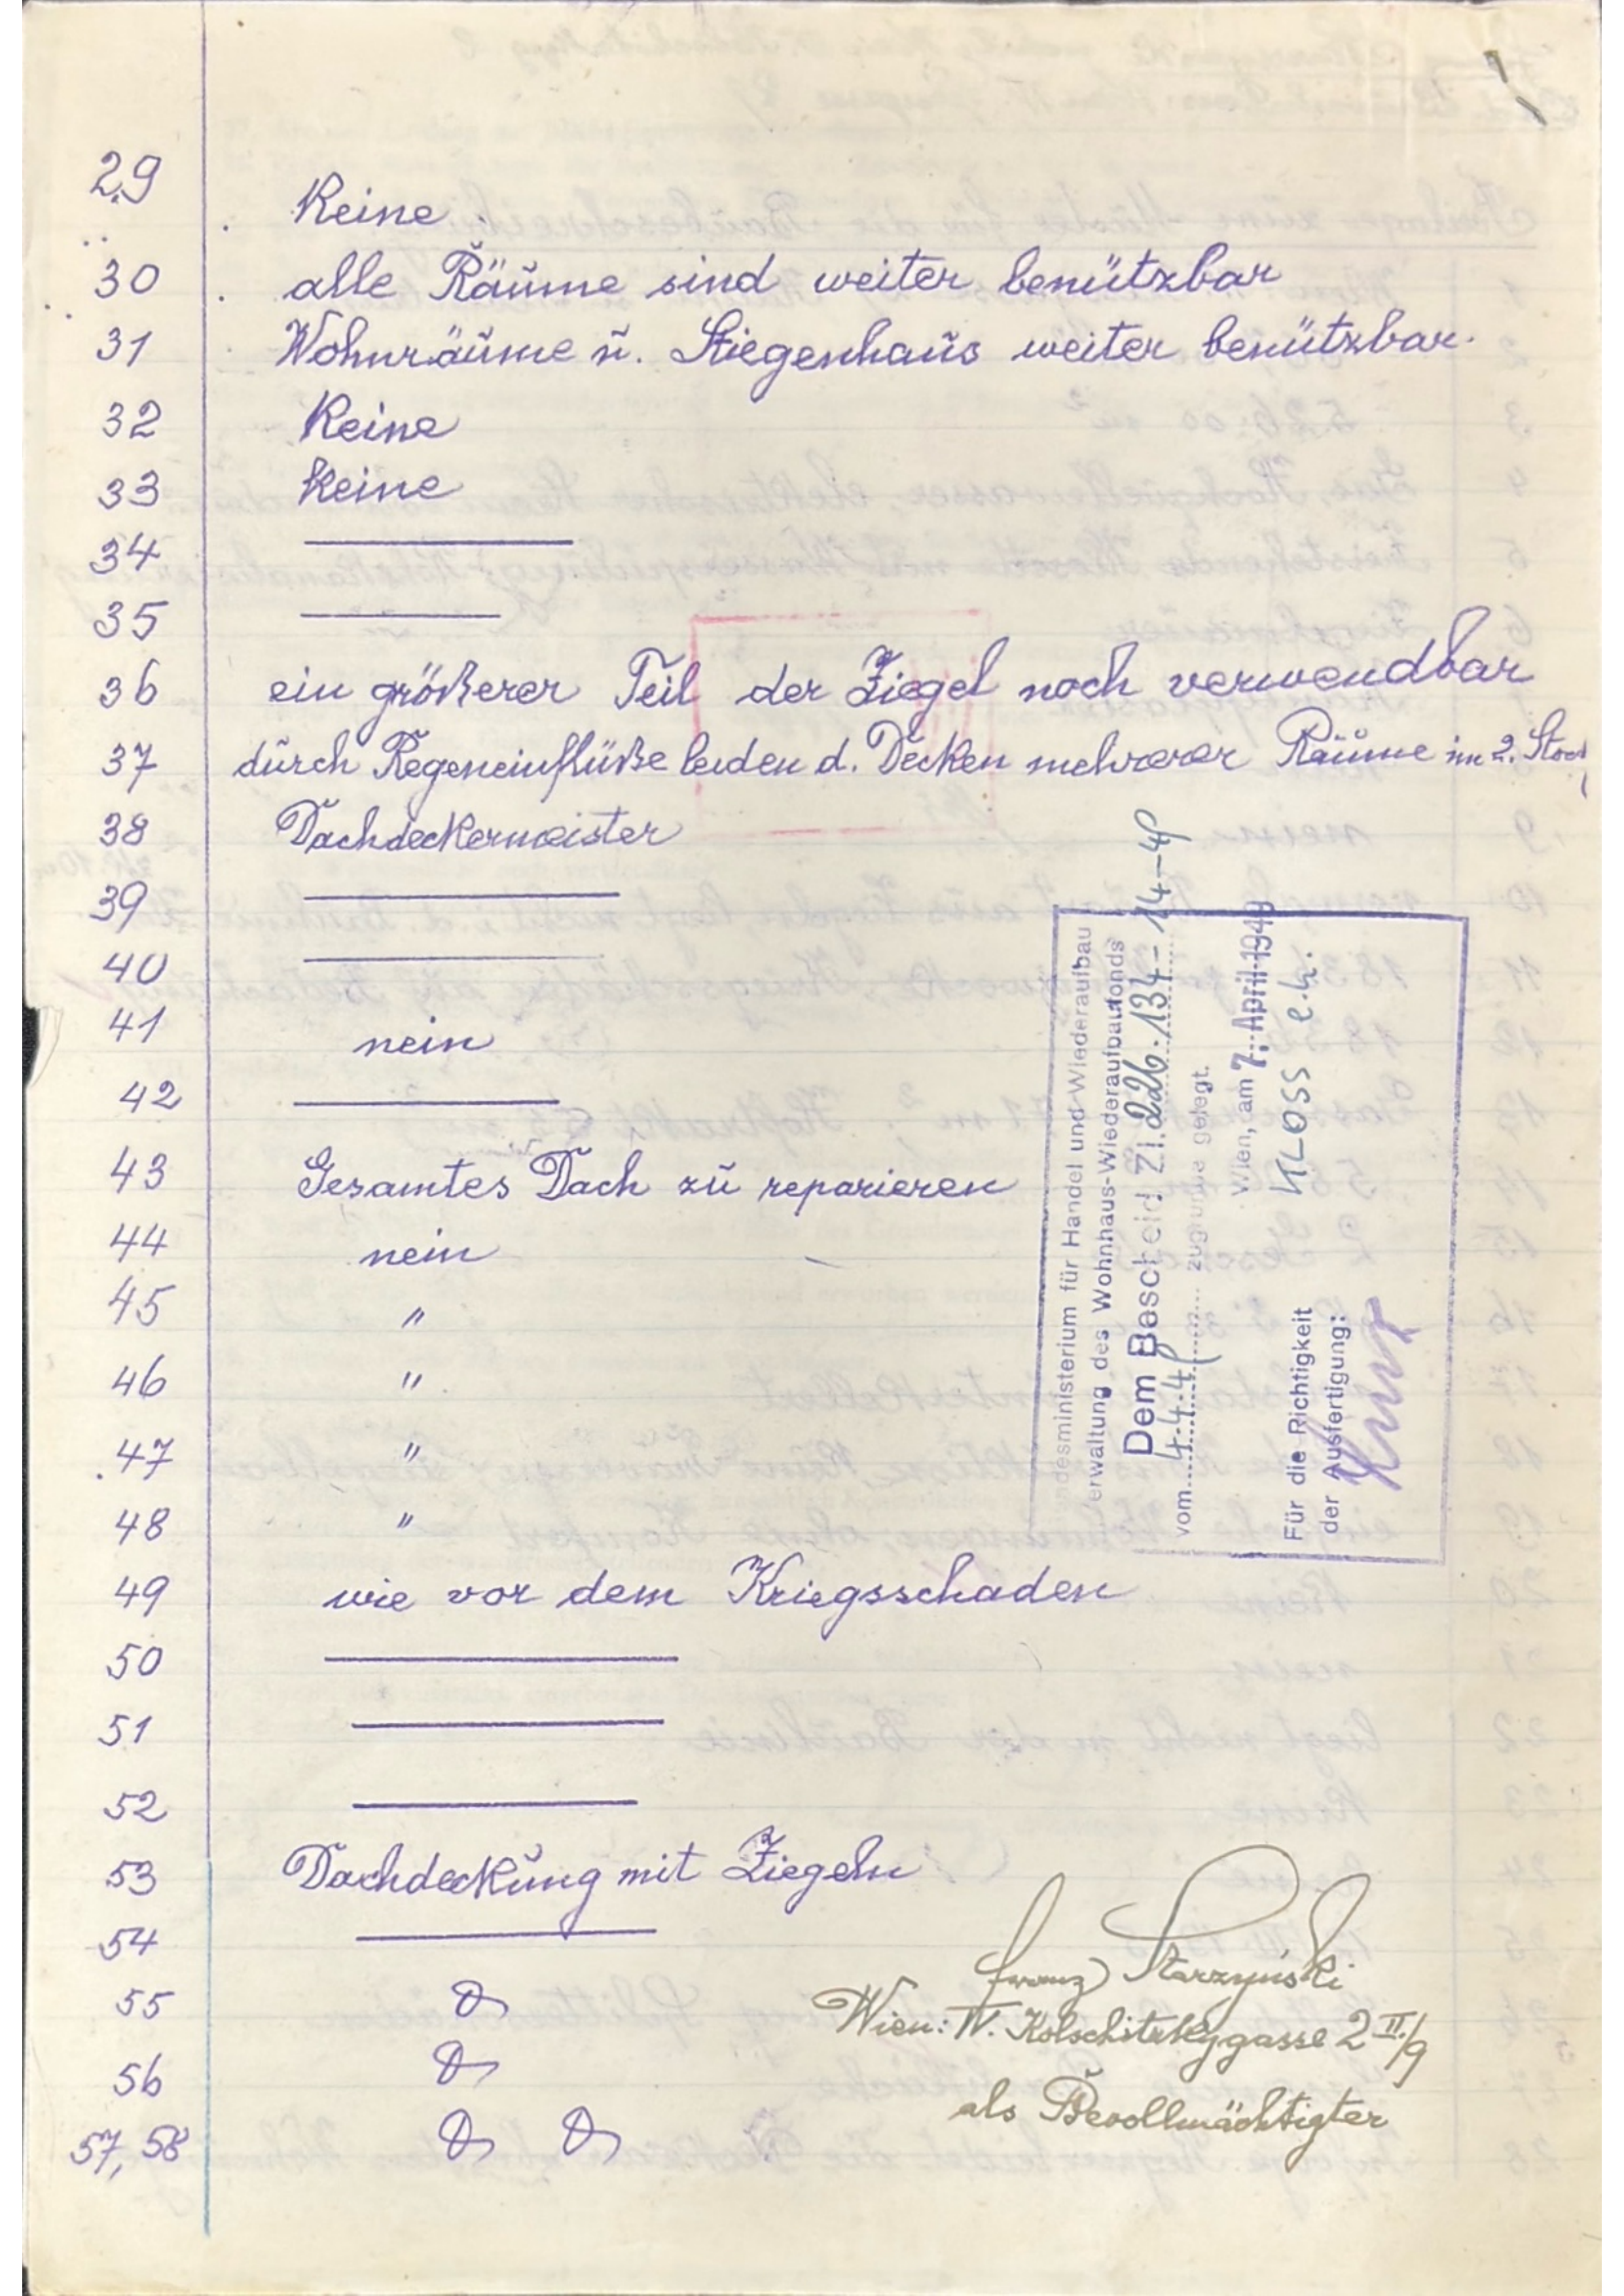 29 Keine
30 alle Räume sind weiter benützbar
31 Wohnräume u. Stiegenhaus weiter benützbar.
32 Keine
33 Keine
34
35
36 ein größerer Teil der Ziegel noch verwendbar
37 durch Regeneinflüße leiden d. Decken mehrerer Räume im 2. Stock
38 Dachdeckermeister
39
40
41 nein
42
43 Gesamtes Dach zu reparieren
44 nein
45 "
46 "
47 "
48 "
49 wie vor dem Kriegsschaden
50
51
52
53 Dachdeckung mit Ziegeln
54
55
56
57, 58
ndesministerium für Handel und Wiederaufbau
erwaltung des Wohnhaus-Wiederaufbaufonds
Dem Bescheid Zl. 226.134-14-49
vom 4.4.49 zugrunde gelegt.
Wien, am 7. April 1949
KLOSS e.h.
Für die Richtigkeit
der Ausfertigung:
Franz Starzyński
Wien: IV. Kolschitzkygasse 2 II/9
als Bevollmächtigter